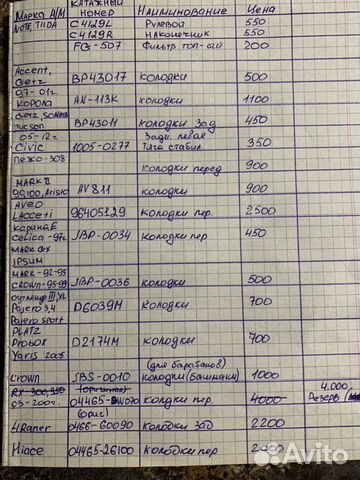 Марка А/М КАТАЖНЫЙ НОМЕР Наименивание Цена
NOTE, TIIDA C4129L Рулевой 550
C4129R наконечник 550
FG-507 Фильтр топ-ый 200
Accent,
Getz BP43017 колодки 500
97-01г.
Королла AN-113K колодки 1100
Getz, Sonata
Tucson BP43011 колодки зад 450
05-12г. Зади левая
Civic 1005-0277 тяга стабил. 350
пежо-308
колодки перед 900
MARK II
90,100, Aristo AV811 колодки 900
AVEO
LAcceti 96405129 колодки пер. 2500
карина Е
Celica-97г JBP-0034 колодки пер 450
MARK QX
IPSUM
MARK-92-95
CROWN-95-99 JBP-0036 колодки 500
оутленд III, XL
Pajero 3,4 D6039M колодки 700
Pajero sport
PLATZ
Probox D2174M колодки 700
Yaris 2005
(для барабанов)
Crown SBS-0010 колодки (башмаки) 1000
RX 300,350 (оригинал) 4.000
03-200г. 04465- колодки пер. 4000 Резерв
(ориг)
4Raner 0466-60090 Колодки зад 2200
Hiace 04465-26100 колодки пер
Avito